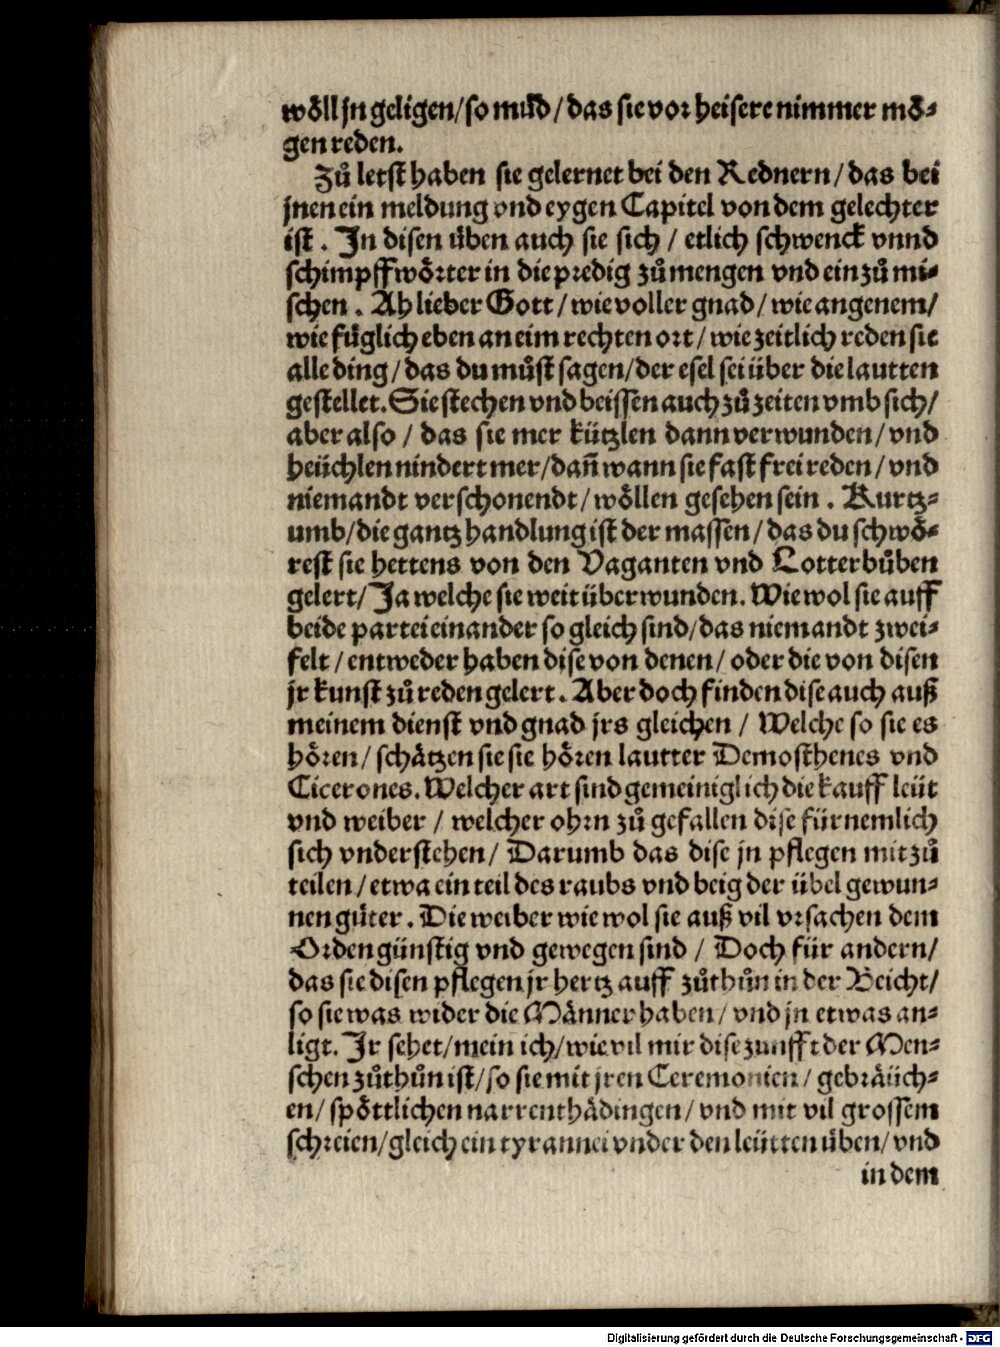 wöll jn geligen/so müd/das sie vor heisere nimmer mö-
gen reden.
Zů letst haben sie gelernet bei den Rednern/das bei
jnen ein meldung vnd eygen Capitel von dem gelechter
ist. In disen üben auch sie sich/etlich schwenck vnnd
schimpffwörter in die predig zů mengen vnd ein zů mi-
schen. Ah lieber Gott/wie voller gnad/wie angenem/
wie füglich eben an eim rechten ort/wie zeitlich reden sie
alle ding/das du můst sagen/der esel sei über die lautten
gestellet. Sie stechen vnd beissen auch zů zeiten vmb sich/
aber also/das sie mer kützlen dann verwunden/vnd
heüchlen nindert mer/dañ wann sie fast frei reden/vnd
niemandt verschonendt/wöllen gesehen sein. Kurtz-
umb/die gantz handlung ist der massen/das du schwö-
rest sie hettens von den Vaganten vnd Lotterbůben
gelert/Ja welche sie weit überwunden. Wie wol sie auff
beide partei einander so gleich sind/das niemandt zwei-
felt/entweder haben dise von denen/oder die von disen
jr kunst zů reden gelert. Aber doch finden dise auch auß
meinem dienst vnd gnad jrs gleichen/Welche so sie es
hören/schätzen sie sie hören lautter Demosthenes vnd
Cicerones. Welcher art sind gemeiniglich die kauff leüt
vnd weiber/welcher ohrn zů gefallen dise fürnemlich
sich vnderstehen/Darumb das dise jn pflegen mit zů
teilen/etwa ein teil des raubs vnd beig der übel gewun-
nen güter. Die weiber wie wol sie auß vil vrsachen dem
Orden günstig vnd gewegen sind/Doch für andern/
das sie disen pflegen jr hertz auff zůthůn in der Beicht/
so sie was wider die Männer haben/vnd jn etwas an-
ligt. Ir sehet/mein ich/wie vil mir dise zunfft der Men-
schen zůthůn ist/so sie mit jren Ceremonien/gebräüch-
en/spöttlichen narrenthädingen/vnd mit vil grossem
schreien/gleich ein tyrannei vnder den leütten üben/vnd
in dem
Digitalisierung gefördert durch die Deutsche Forschungsgemeinschaft - DFG